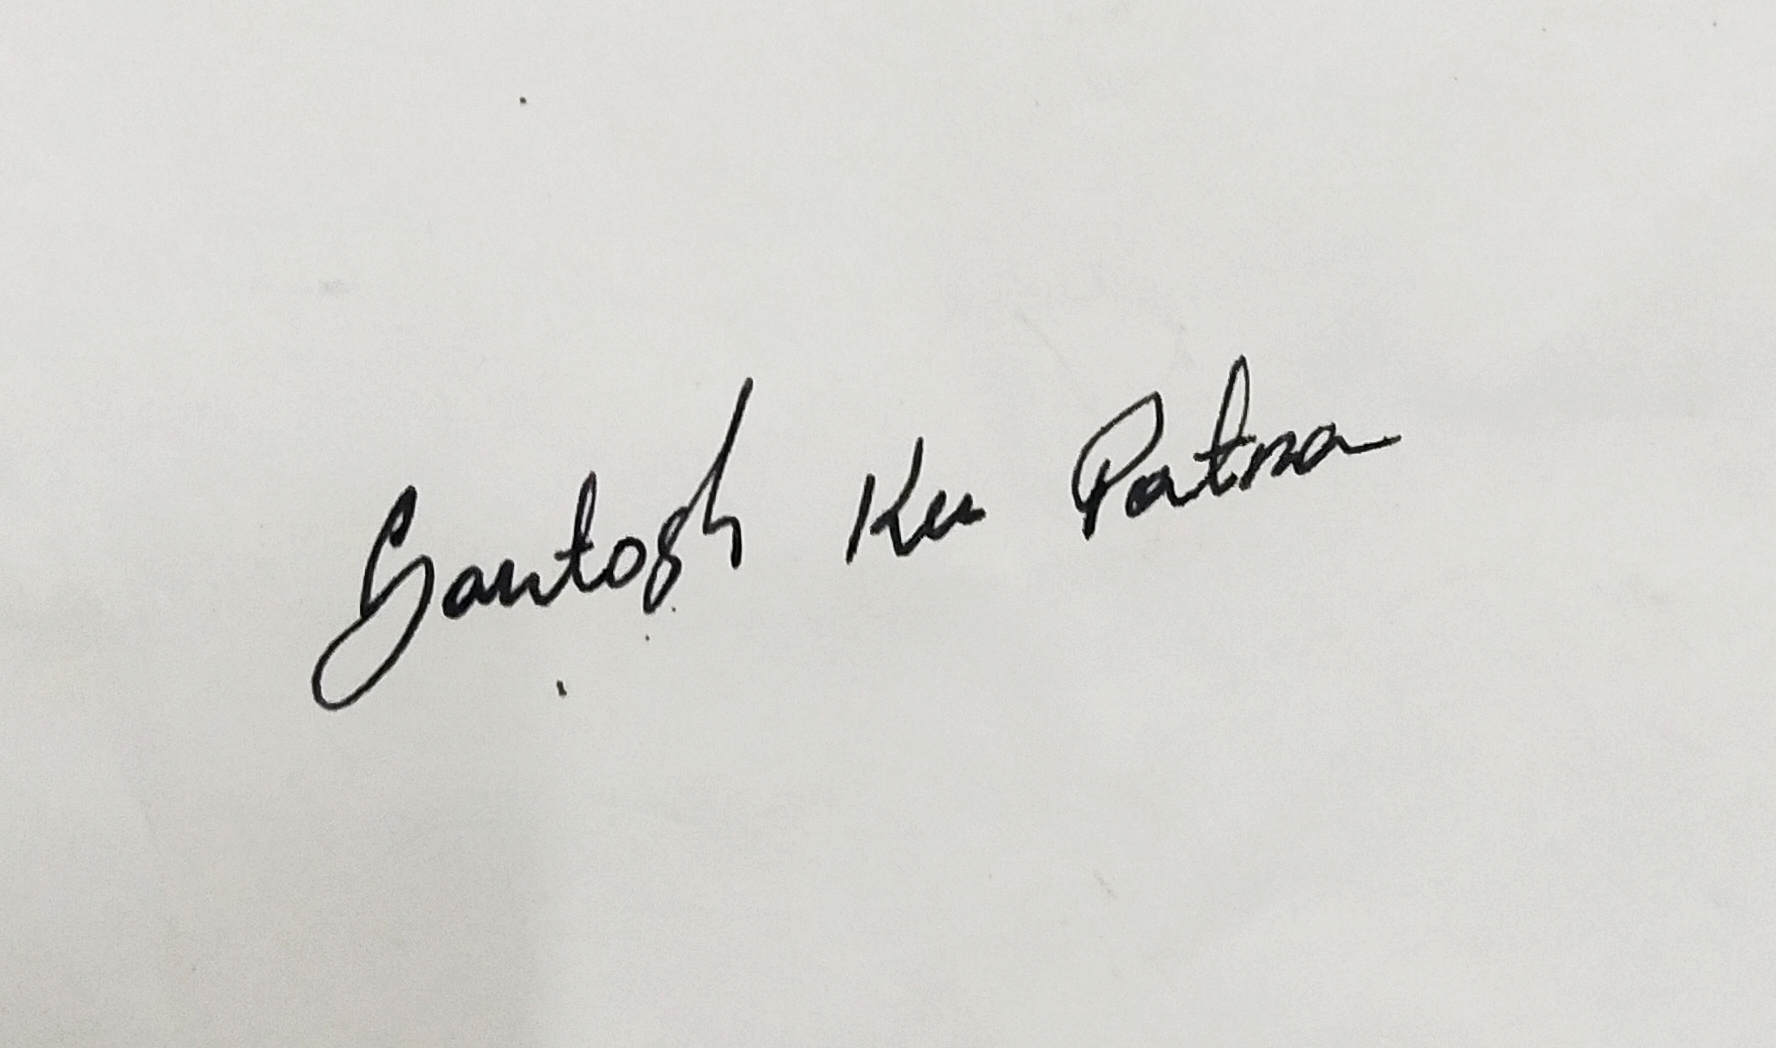 Santosh Ku Patra